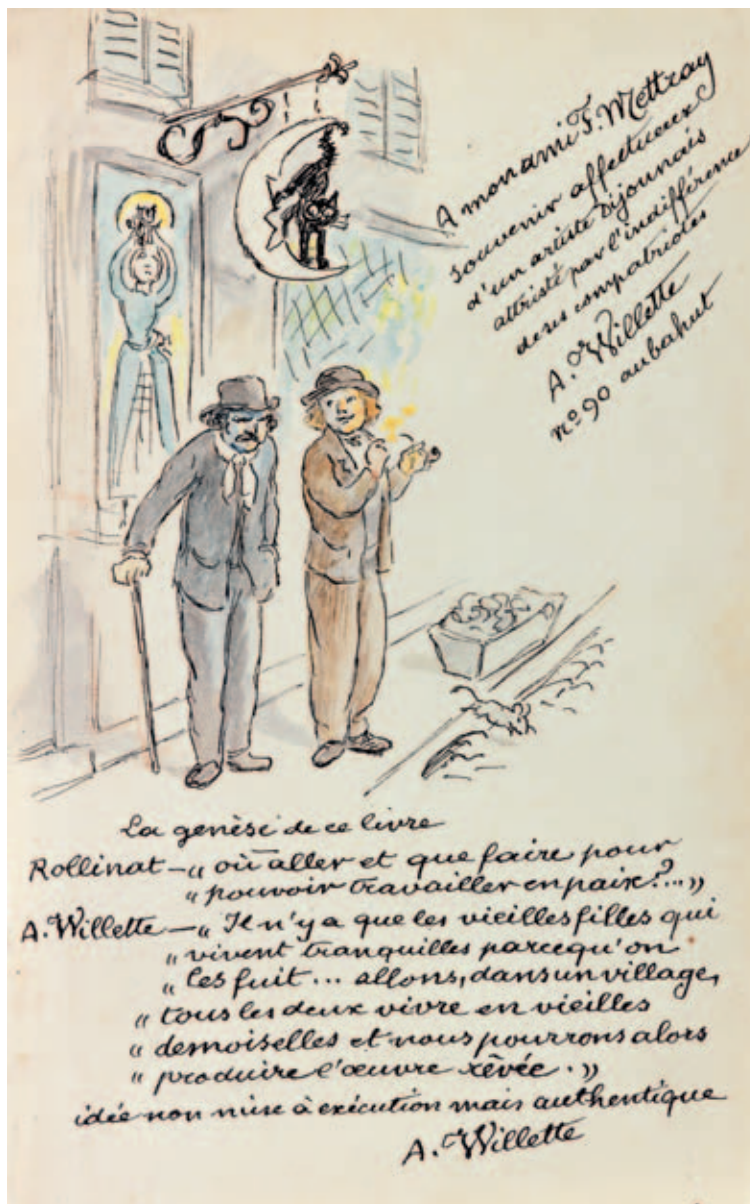 A mon ami F. Mettray
souvenir affectueux
d'un artiste Dijonnais
attristé par l'indifférence
de ses compatriotes
A. Willette
nº 90 au bahut
La genèse de ce livre
Rollinat — „ où aller et que faire pour
„ pouvoir travailler en paix?... „
A. Willette — „ Il n'y a que les vieilles filles qui
„ vivent tranquilles parcequ'on
„ les fuit... allons, dans un village,
„ tous les deux vivre en vieilles
„ demoiselles et nous pourrons alors
„ produire l'œuvre rêvée. „
idée non mise à exécution mais authentique
A. Willette